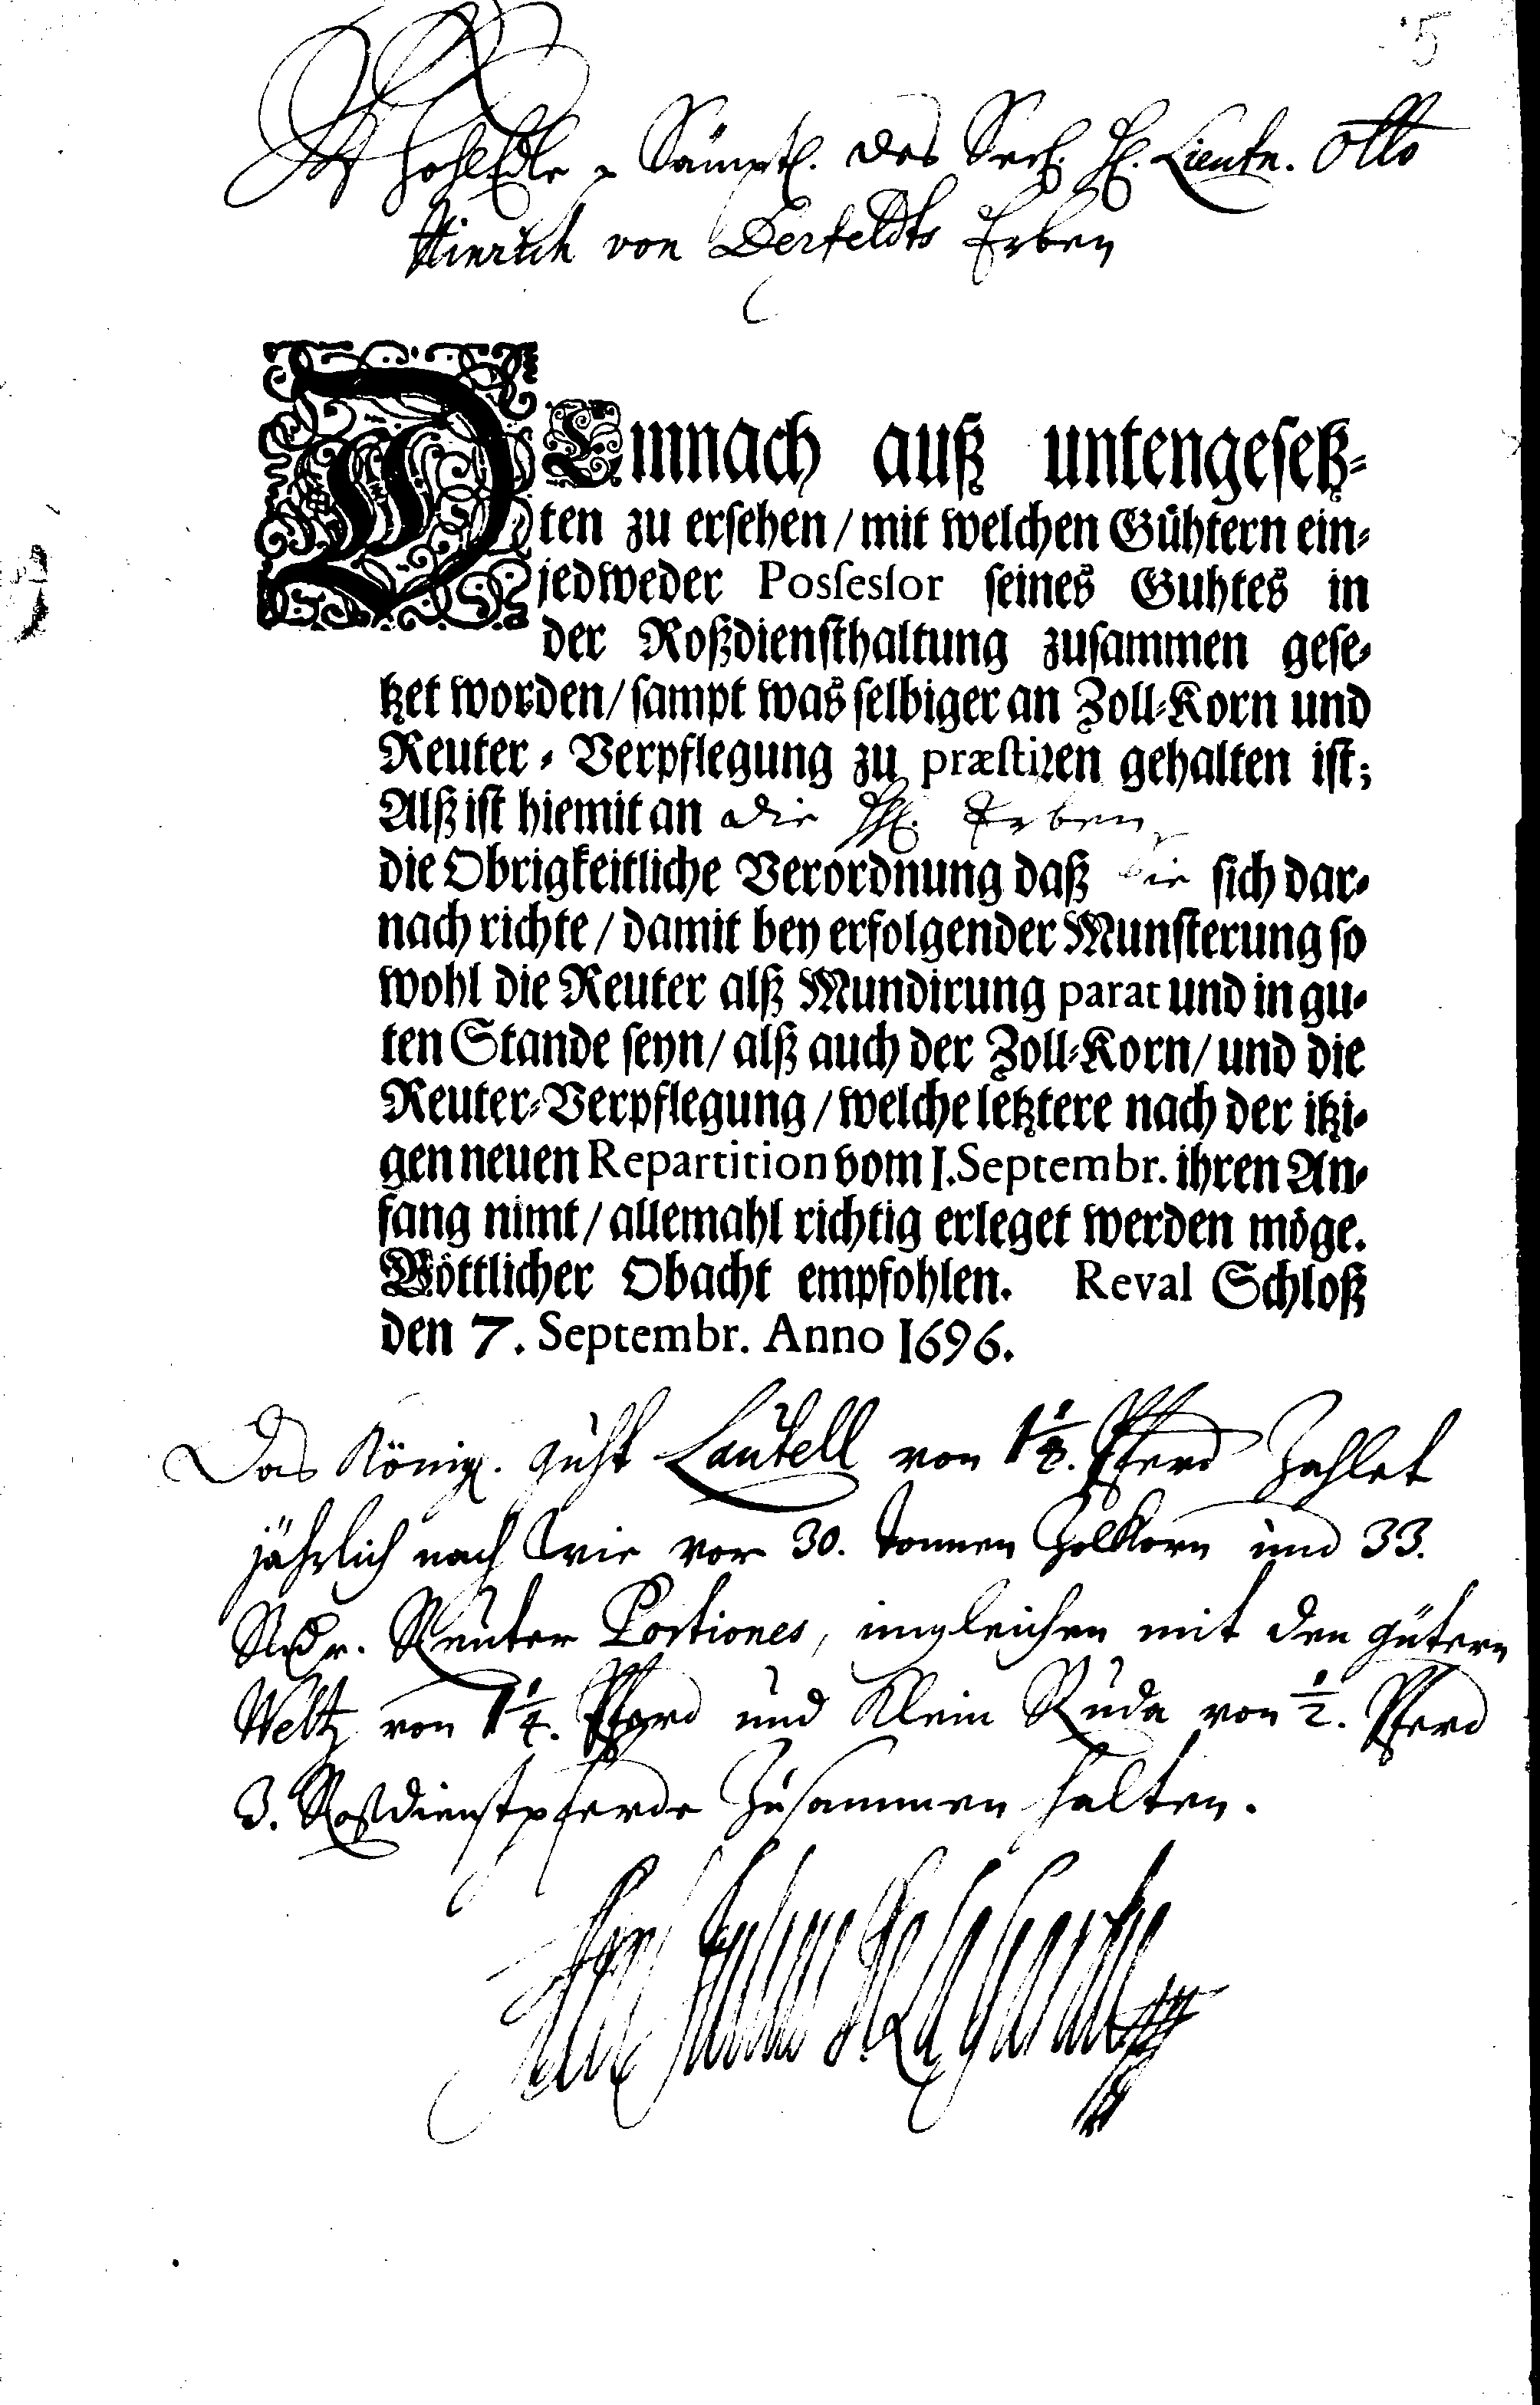 5
HohlEdle Sämptl. des Seel. H. Lieutn. Otto
Hinrich von Derfeldts Erben
DEmnach auß untengesetz-
ten zu ersehen / mit welchen Gühtern ein-
jedweder Possessor seines Guhtes in
der Roßdiensthaltung zusammen gese-
tzet worden / sampt was selbiger an Zoll-Korn und
Reuter-Verpflegung zu præstiren gehalten ist;
Alß ist hiemit an die HH. Erben
die Obrigkeitliche Verordnung daß sie sich dar-
nach richte / damit bey erfolgender Munsterung so
wohl die Reuter alß Mundirung parat und in gu-
ten Stande seyn / alß auch der Zoll-Korn / und die
Reuter-Verpflegung / welche letztere nach der itzi-
gen neuen Repartition vom 1. Septembr. ihren An-
fang nimt / allemahl richtig erleget werden möge.
Göttlicher Obacht empfohlen. Reval Schloß
den 7. Septembr. Anno 1696.
Das König. guht Lautell von 1¼. Pferd Zahlet
jährlich nach wie vor 30. Tonnen Zolkorn und 33.
Reuter Portiones, imgleichen mit den gütern
Weltz von 1¼. Pferd und Klein Ruda von ½. Pferd
3. Roßdienstpferde Zusammen halten.